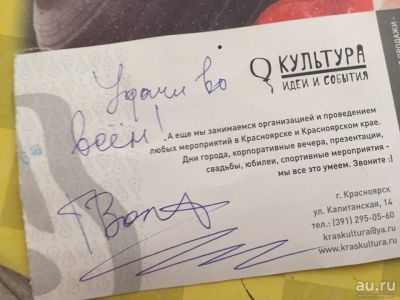 Удачи во
всём!
КУЛЬТУРА
ИДЕИ И СОБЫТИЯ
.А еще мы занимаемся организацией и проведением
любых мероприятий в Красноярске и Красноярском крае.
Дни города, корпоративные вечера, презентации,
свадьбы, юбилеи, спортивные мероприятия -
мы все это умеем. Звоните :)
г. Красноярск
ул. Капитанская, 14
тел.: (391) 295-05-60
kraskultura@ya.ru
www.kraskultura.ru
au.ru